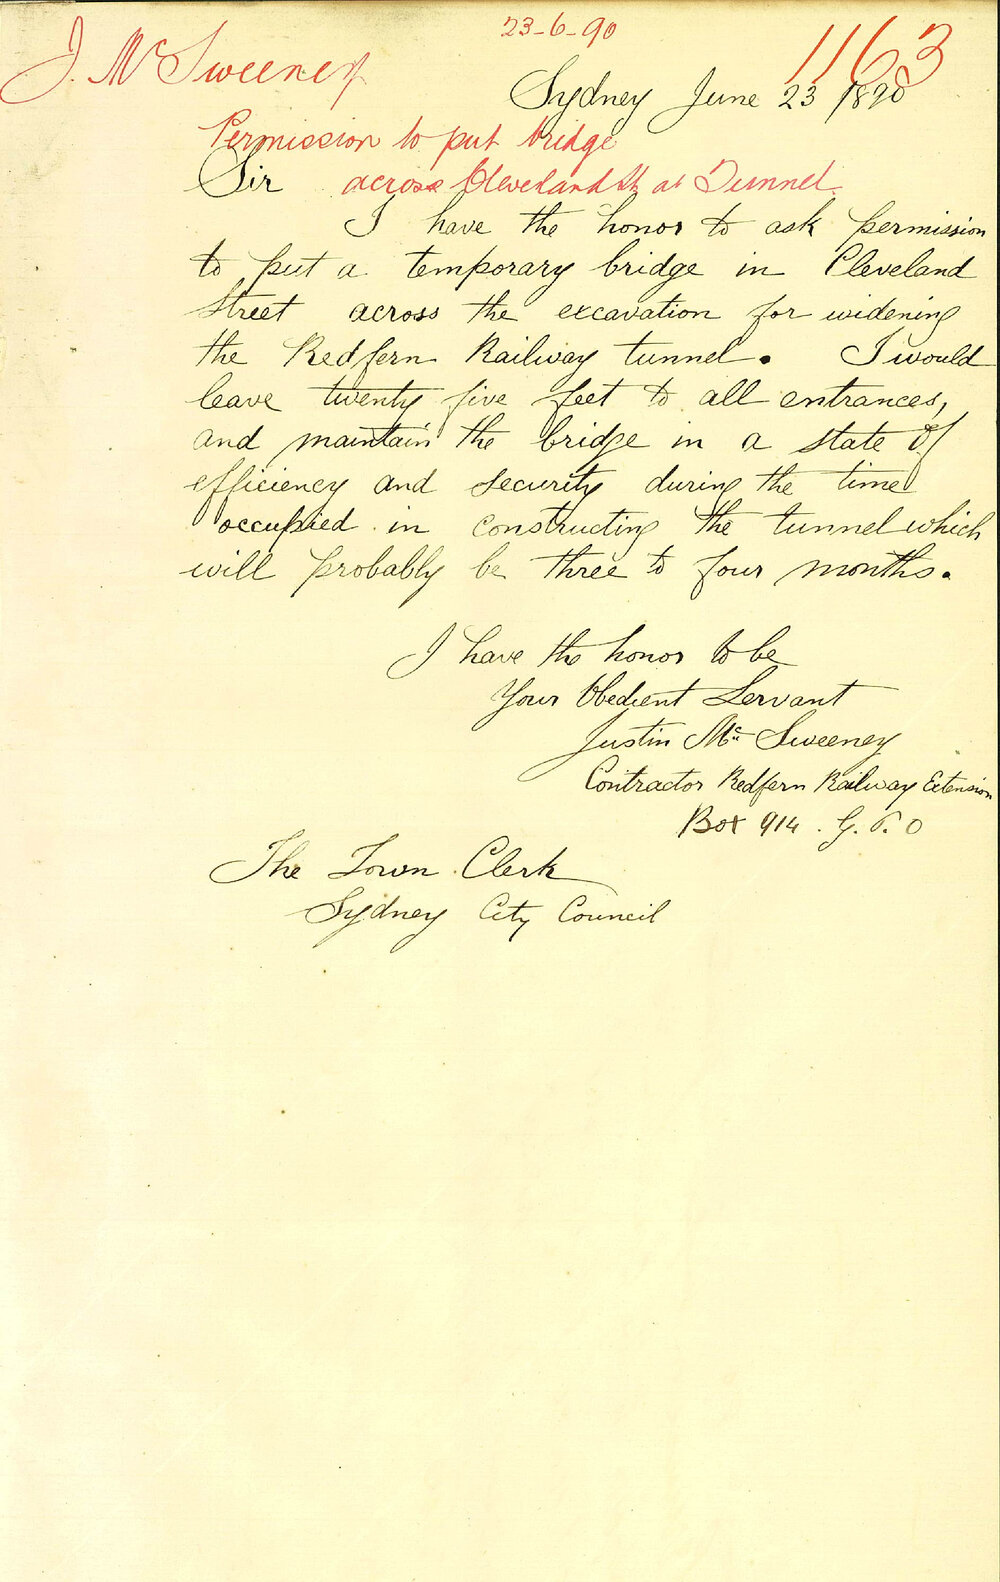 23-6-90
J. McSweeney
1163
Sydney June 23 1890
Permission to put bridge
across Cleveland St at Tunnel.
Sir
I have the honor to ask permission
to put a temporary bridge in Cleveland
Street across the excavation for widening
the Redfern Railway tunnel. I would
leave twenty five feet to all entrances,
and maintain the bridge in a state of
efficiency and security during the time
occupied in constructing the tunnel which
will probably be three to four months.
I have the honor to be
Your Obedient Servant
Justin McSweeney
Contractor Redfern Railway Extension
Box 914. G.P.O
The Town Clerk
Sydney City Council